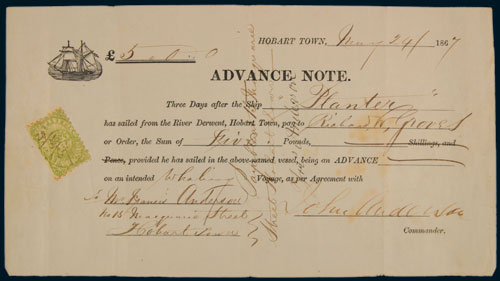 £ 5
HOBART TOWN, May 24/ 1867
ADVANCE NOTE.
Three Days after the Ship Planter
has sailed from the River Derwent, Hobart Town, pay to Richard Groves
or Order, the Sum of Five Pounds, Shillings, and
Pence, provided he has sailed in the above-named vessel, being an ADVANCE
on an intended Whaling Voyage, as per Agreement with
To Mr Francis Anderson John Anderson
No 15 Macquarie Street
Hobart Town Commander.